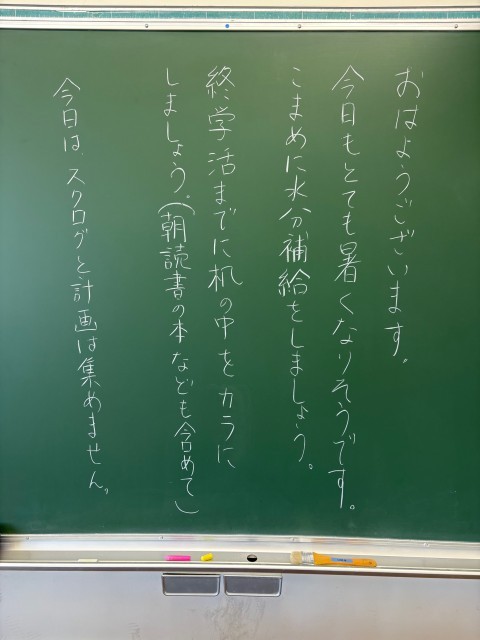 おはようございます。
今日もとても暑くなりそうです。
こまめに水分補給をしましょう。
終学活までに机の中をカラに
しましょう。(朝読書の本なども含めて)
今日は、スクログと計画は集めません。